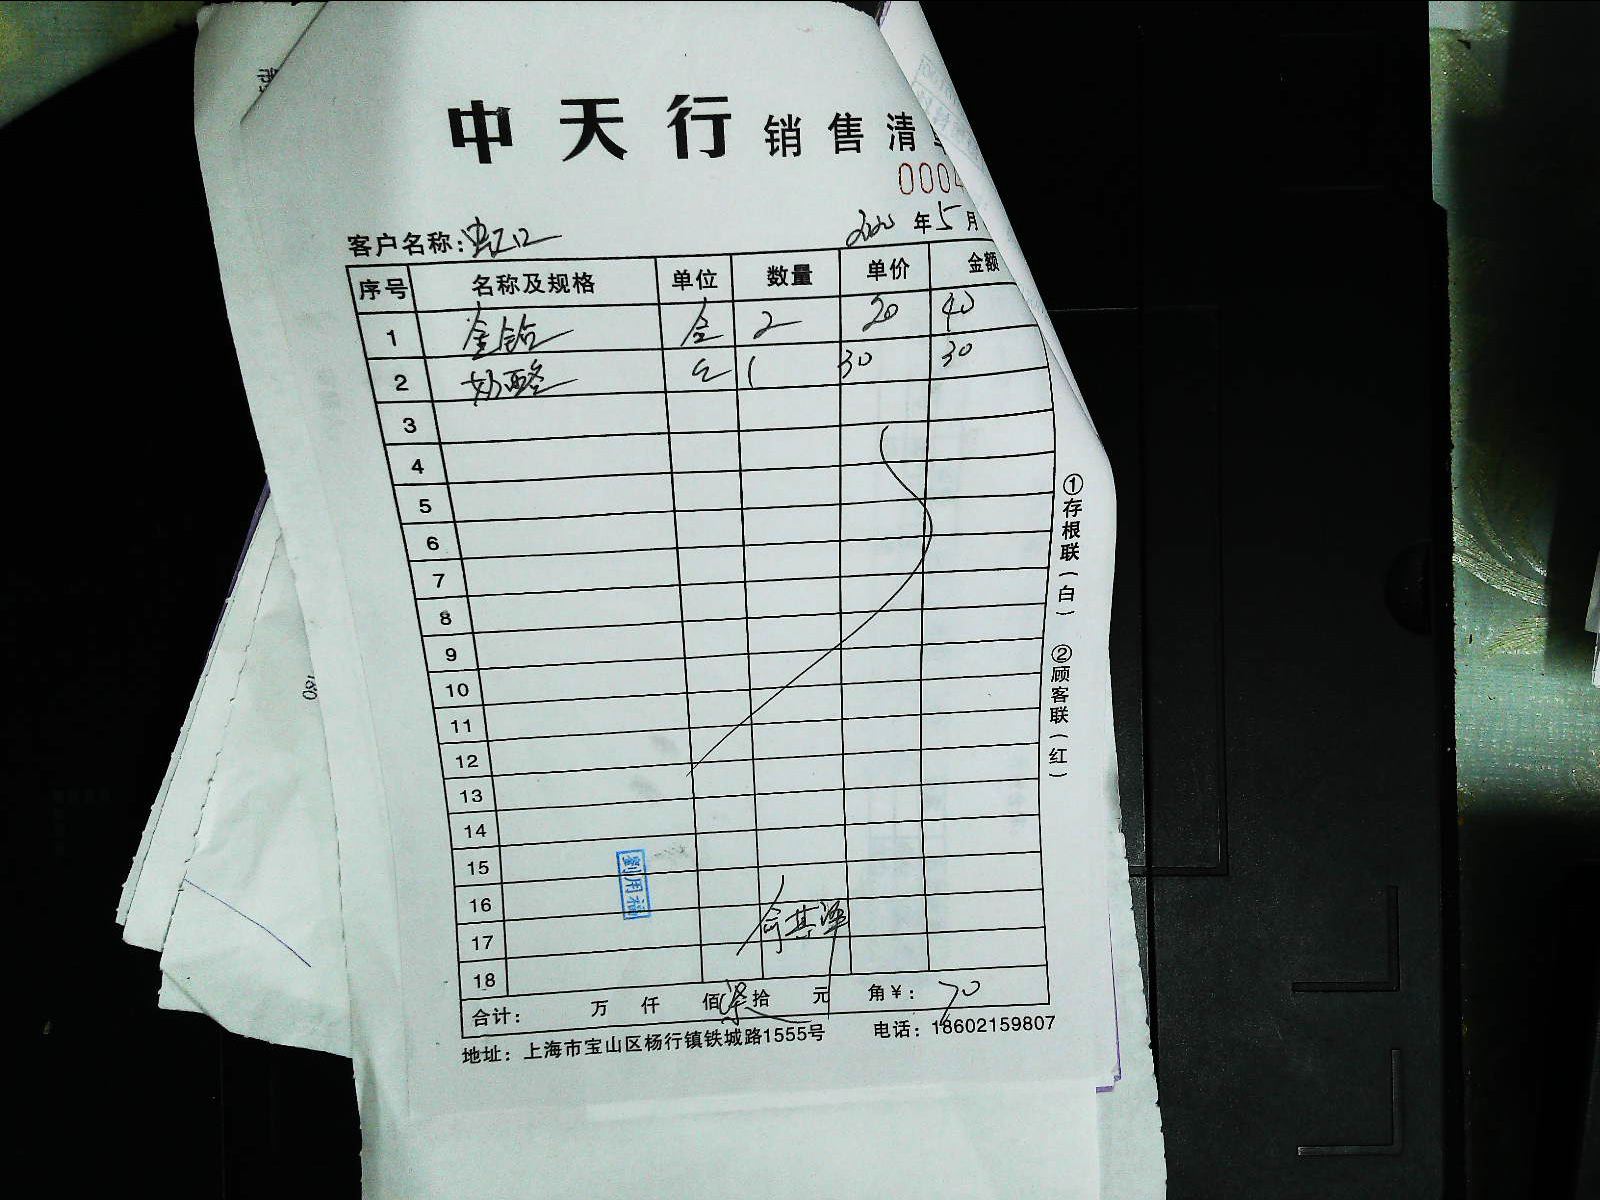 中天行 销售清
0004
客户名称: 虹口 2020 年 5 月
序号 名称及规格 单位 数量 单价 金额
1 金钻 合 2 20 40
2 奶酪 1 30 30
3
4
5
6
7
8
9
10
11
12
13
14
15
16
17
18
合计: 万 仟 佰 柒 拾 元 角 ¥: 70
地址: 上海市宝山区杨行镇铁城路1555号 电话: 18602159807
①存根联(白) ②顾客联(红)